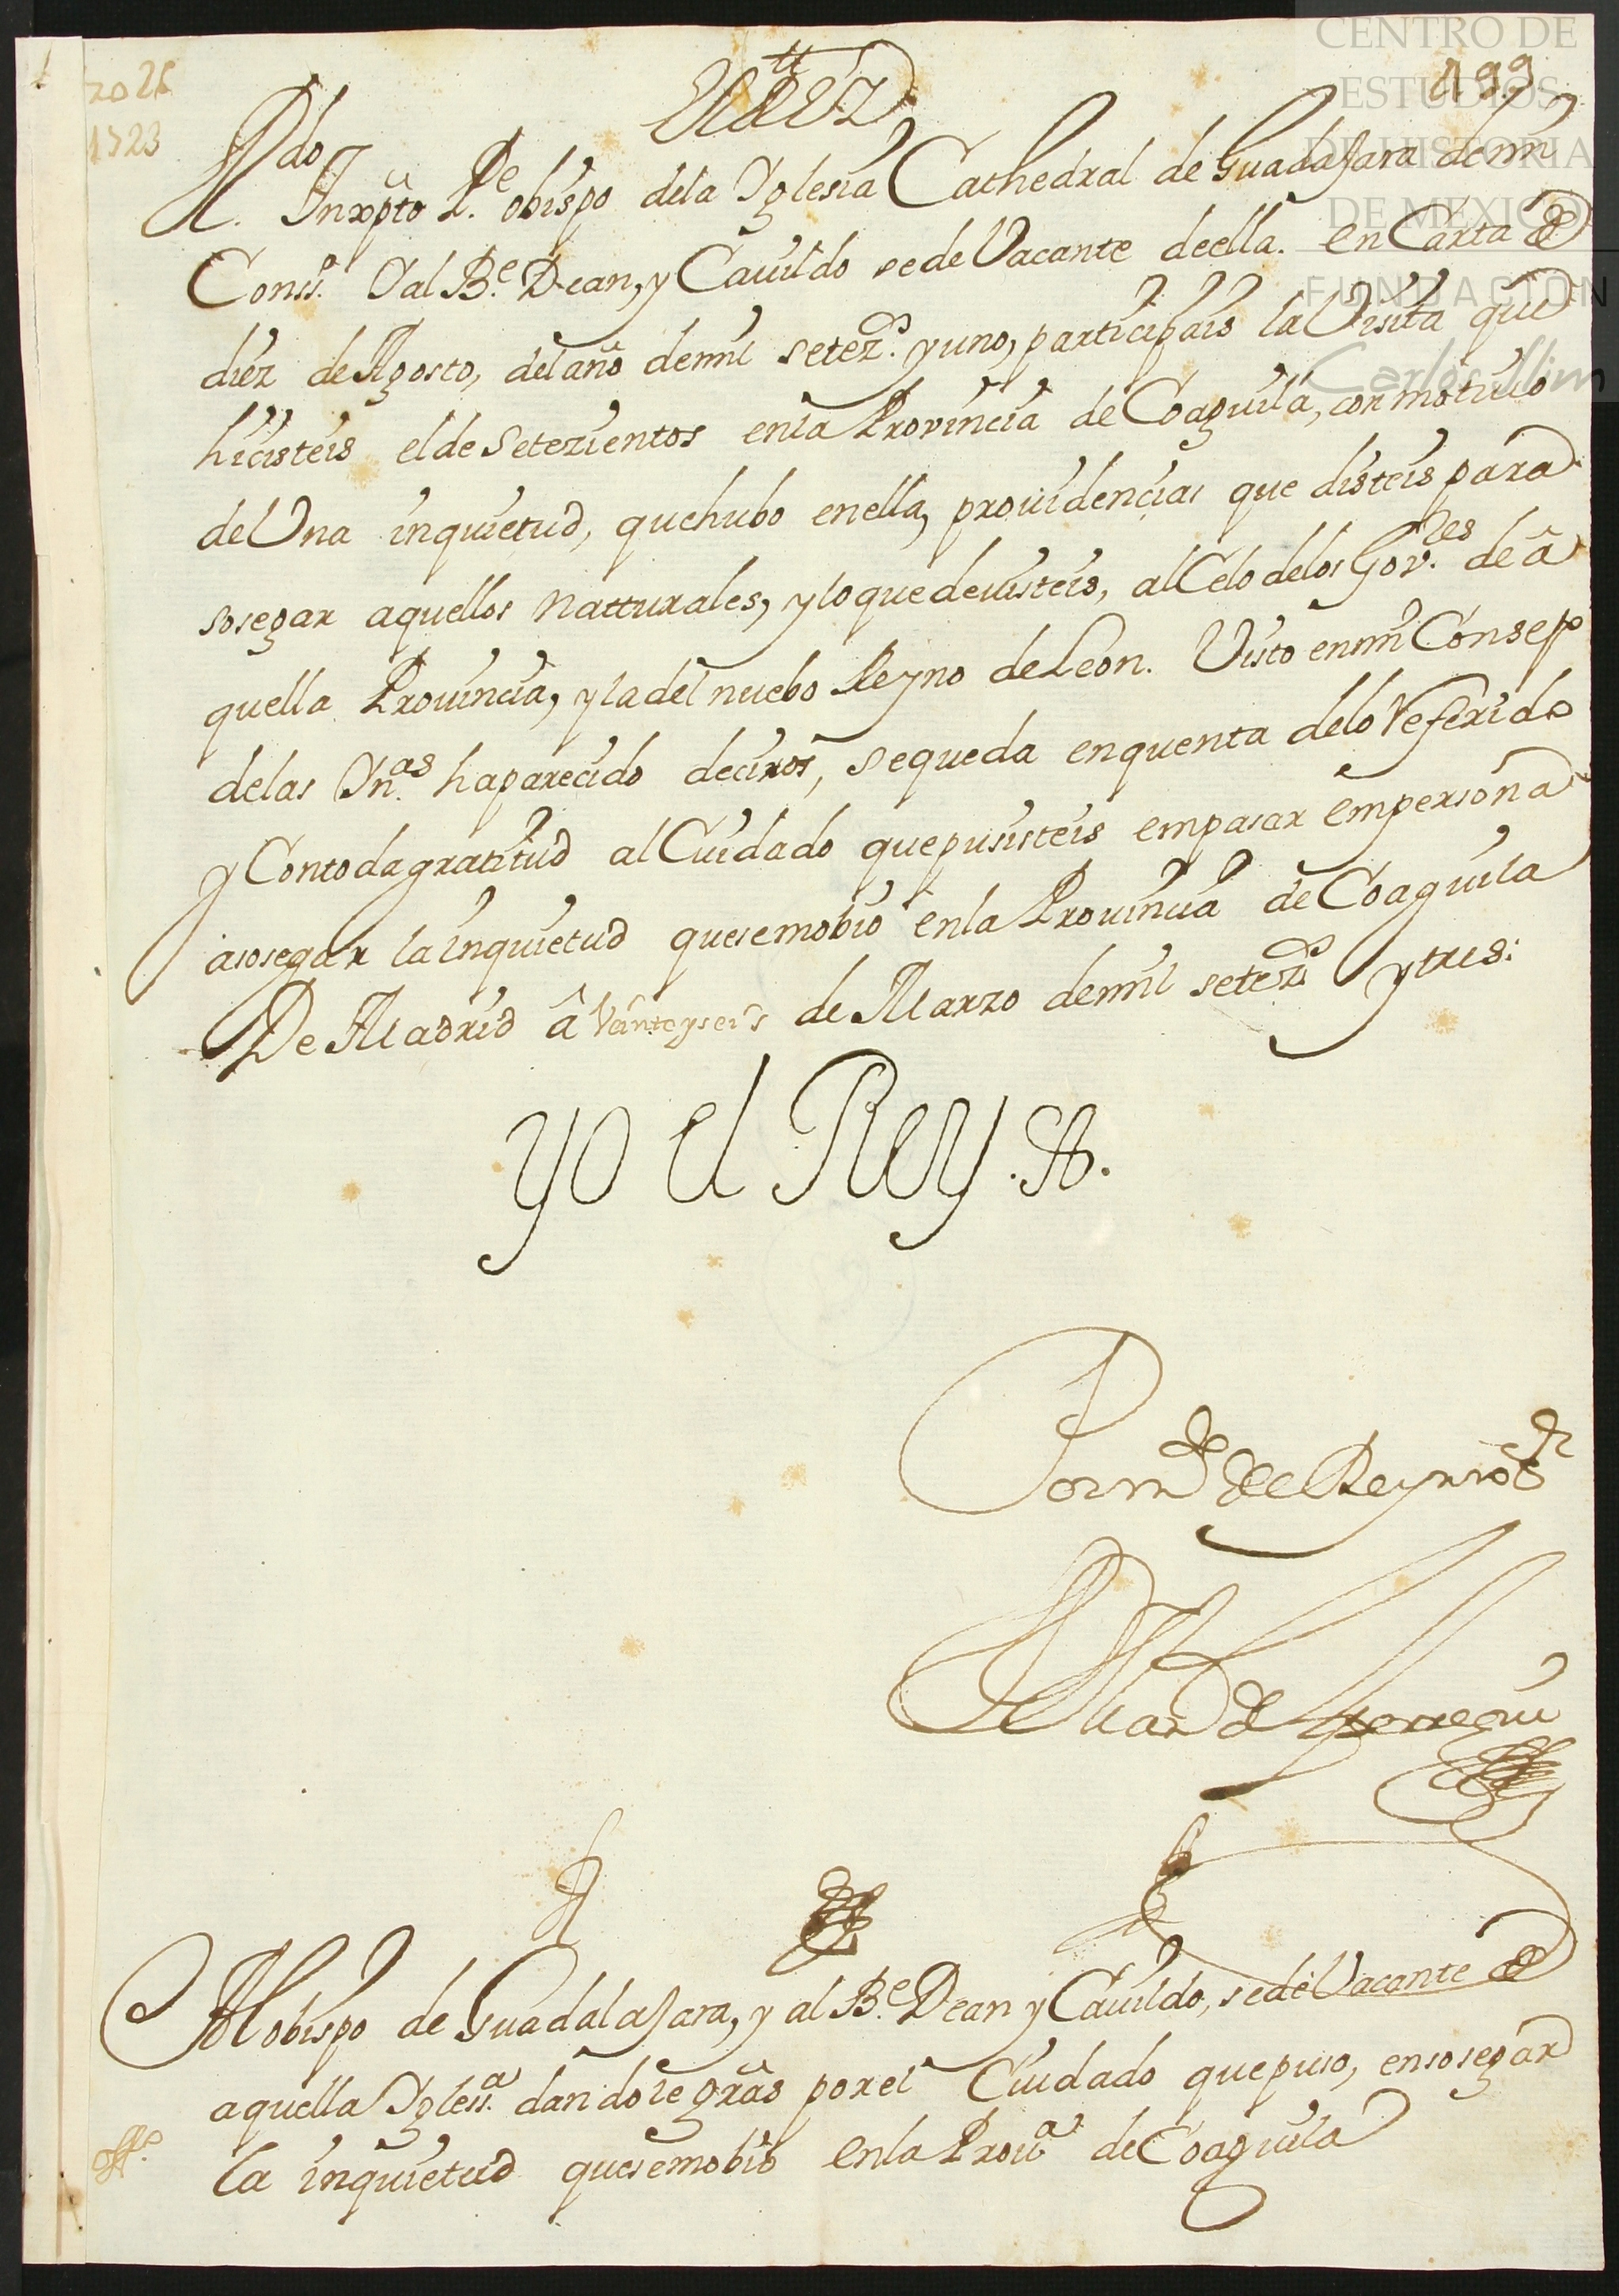 2026
1723
199
CENTRO DE
ESTUDIOS
DE HISTORIA
DE MEXICO
FUNDACION
Carlos Slim
El Rey
R.do Inxpto P.e obispo dela Yglesia Cathedral de Guadalajara demi
Conss.o Y al B.e Dean, y Cauildo sede Vacante deella. en Carta de
diez de Agosto, del año demil setez.s yuno, participais la Visita que
hicisteis elde Setezientos enla Provincia de Coaguila, con motiuo
de Una inquietud, quehubo enella, prouidencias que disteis para
sosegar aquellos Natturales, yloquedeuisteis, alCelo delos Gov.res de â
quella Prouincia, yladel nuebo Reyno deLeon. Visto enmi Consejo
delas Yn.as haparecido deciros, sequeda enquenta delo Referido
y Contoda gratitud al Cuidado quepusisteis empasar empersona
asosegar la inquietud quesemobio enla Prouincia de Coaguila
De Madrid â Veinteyseis de Marzo demil setez.s y tres.
yo el Rey
Por m.do del Rey nro s.r
Man de
Al obispo de Guadalajara, y al B.e Dean y Cauildo, sede Vacante de
aquella Ygless.a dandole grãs porel Cuidado quepuso, ensosegar
la inquietud quesemobio enla Prou.a de Coaguila